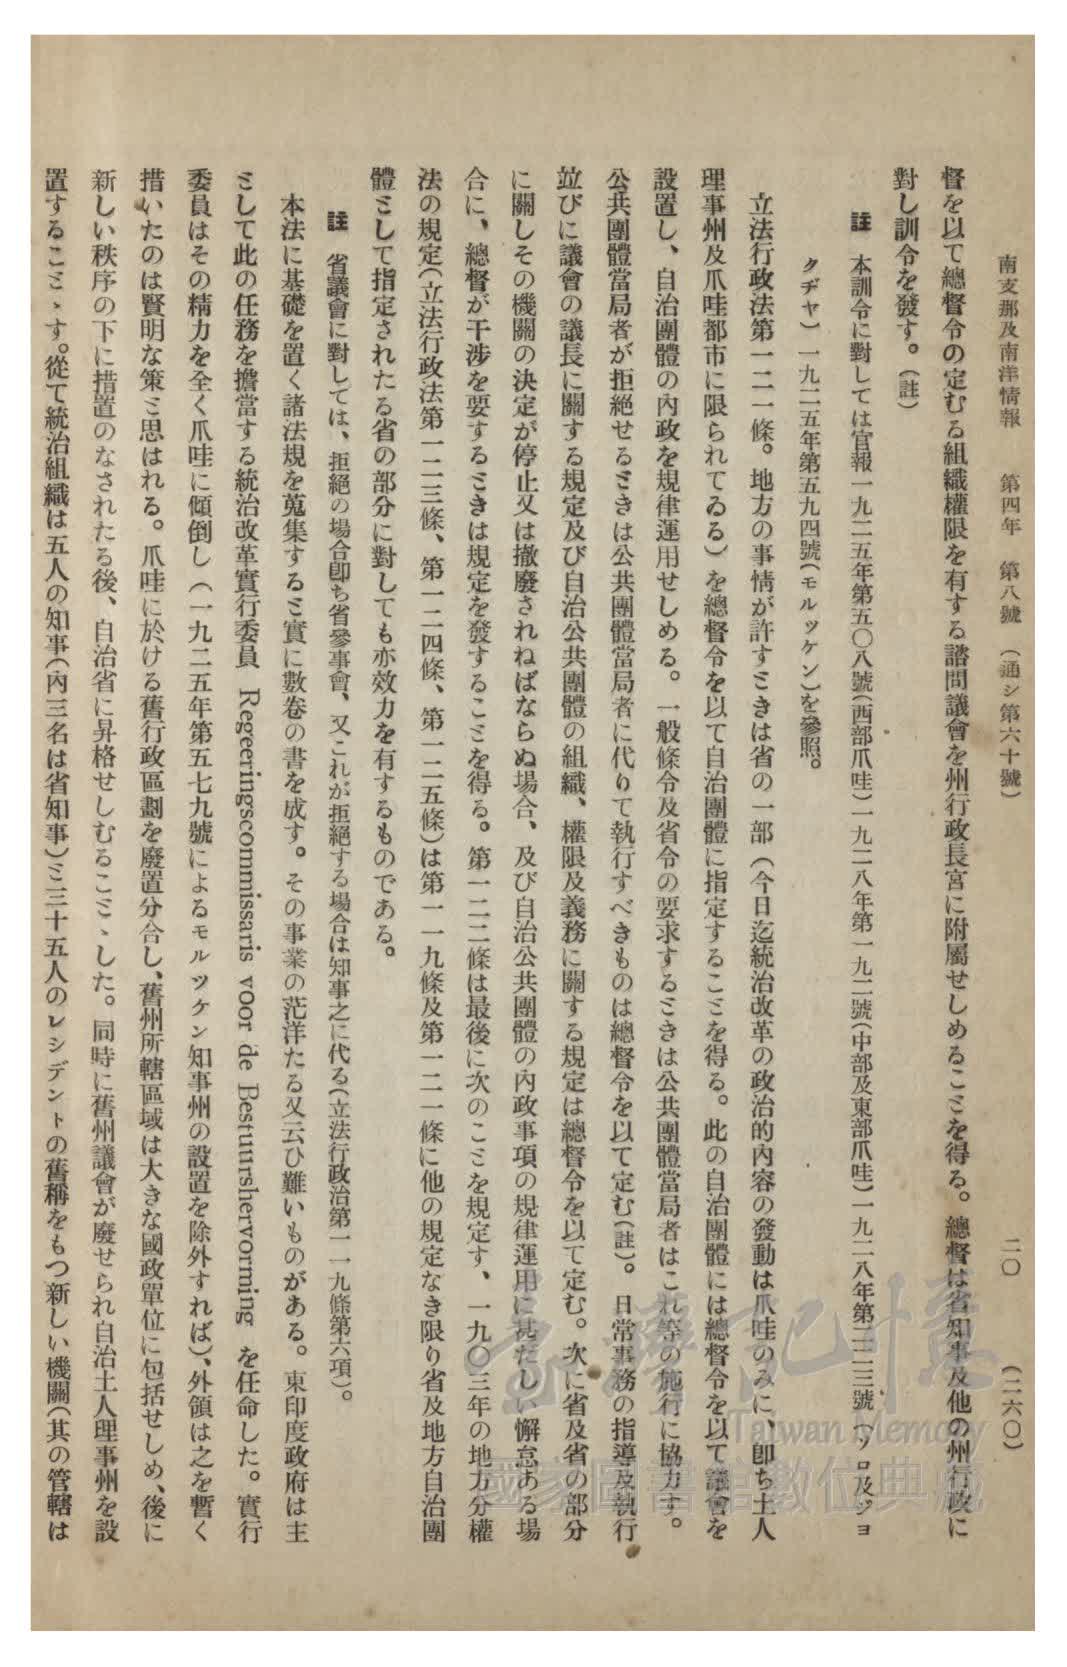 南支那及南洋情報　第四年　第八號　（通シ第六十號）　二〇　（二六〇）
督を以て總督令の定むる組織權限を有する諮問議會を州行政長官に附屬せしめることを得る。總督は省知事及他の州行政に
對し訓令を發す。（註）
註　本訓令に對しては官報一九二五年第五〇八號（西部爪哇）一九二八年第一九二號（中部及東部爪哇）一九二八年第二二三號（ソロ及ジョ
クヂヤ）一九二五年第五九四號（モルツケン）を參照。
立法行政法第一二一條。地方の事情が許すときは省の一部（今日迄統治改革の政治的內容の發動は爪哇のみに、卽ち土人
理事州及爪哇都市に限られてゐる）を總督令を以て自治團體に指定することを得る。此の自治團體には總督令を以て議會を
設置し、自治團體の內政を規律運用せしめる。一般條令及省令の要求するときは公共團體當局者はこれ等の施行に協力す。
公共團體當局者が拒絕せるときは公共團體當局者に代りて執行すべきものは總督令を以て定む（註）。日常事務の指導及執行
竝びに議會の議長に關する規定及び自治公共團體の組織、權限及義務に關する規定は總督令を以て定む。次に省及省の部分
に關しその機關の決定が停止又は撤廢されねばならぬ場合、及び自治公共團體の內政事項の規律運用に甚だしい懈怠ある場
合に、總督が干涉を要するときは規定を發することを得る。第一二二條は最後に次のことを規定す、一九〇三年の地方分權
法の規定（立法行政法第一二三條、第一二四條、第一二五條）は第一一九條及第一二一條に他の規定なき限り省及地方自治團
體として指定されたる省の部分に對しても亦效力を有するものである。
註　省議會に對しては、拒絕の場合卽ち省參事會、又これが拒絕する場合は知事之に代る（立法行政治第一一九條第六項）。
本法に基礎を置く諸法規を蒐集すると實に數卷の書を成す。その事業の茫洋たる又云ひ難いものがある。東印度政府は主
として此の任務を擔當する統治改革實行委員 Regeeringscommissaris voor de Bestuurshervorming を任命した。實行
委員はその精力を全く爪哇に傾倒し（一九二五年第五七九號によるモルツケン知事州の設置を除外すれば）、外領は之を暫く
措いたのは賢明な策と思はれる。爪哇に於ける舊行政區劃を廢置分合し、舊州所轄區域は大きな國政單位に包括せしめ、後に
新しい秩序の下に措置のなされたる後、自治省に昇格せしむることゝした。同時に舊州議會が廢せられ自治土人理事州を設
置することゝす。從て統治組織は五人の知事（內三名は省知事）と三十五人のレシデントの舊稱をもつ新しい機關（其の管轄は
臺灣記憶
Taiwan Memory
國家圖書館數位典藏